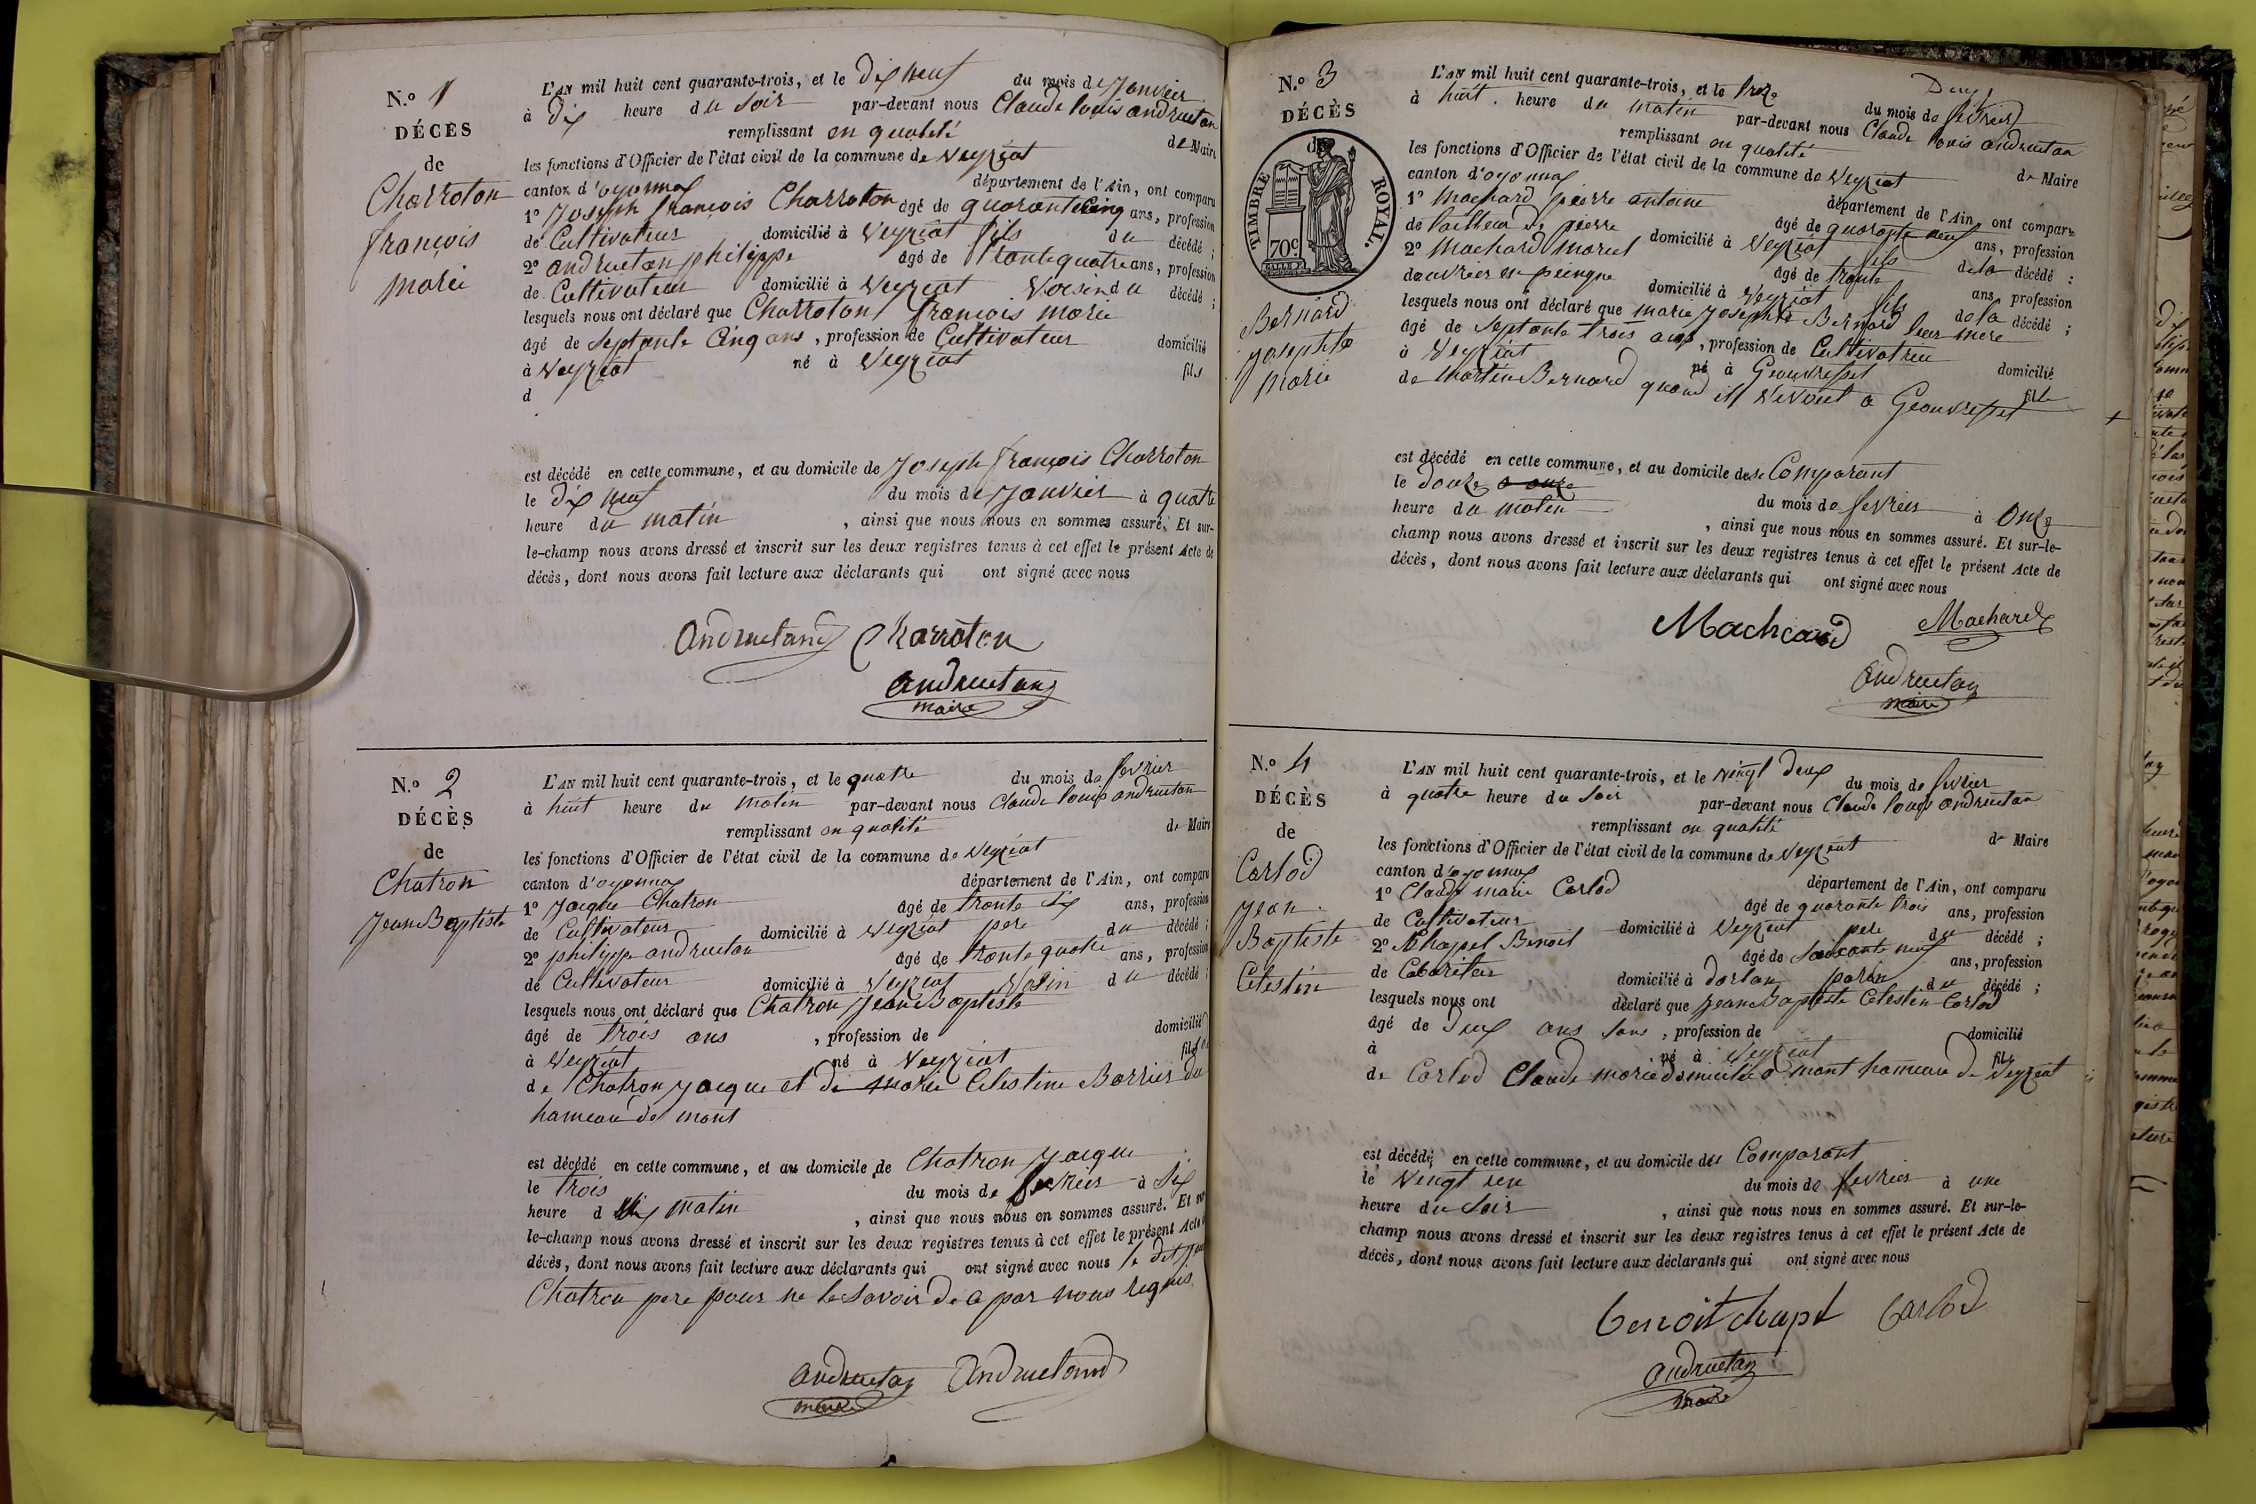 N.o 1
DÉCÈS
de
Charroton
françois
marie
L'AN mil huit cent quarante-trois, et le dix neuf du mois de Janvier
à dix heure du soir par-devant nous Claude louis andruetan
remplissant en qualité de Maire
les fonctions d'Officier de l'état civil de la commune de Veyziat
canton d'oyonnax département de l'Ain, ont comparu
1o Joseph françois Charroton âgé de quarante cinq ans, profession
de Cultivateur domicilié à Veyziat fils du décédé ;
2o andruetan philippe âgé de trente quatre ans, profession
de Cultivateur domicilié à Veyziat Voisin du décédé ;
lesquels nous ont déclaré que Charroton françois marie
âgé de septante Cinq ans, profession de Cultivateur domicilié
à Veyziat né à Veyziat fils
d
est décédé en cette commune, et au domicile de Joseph françois Charroton
le dix neuf du mois de Janvier à quatre
heure du matin, ainsi que nous nous en sommes assuré. Et sur-
le-champ nous avons dressé et inscrit sur les deux registres tenus à cet effet le présent Acte de
décès, dont nous avons fait lecture aux déclarants qui ont signé avec nous
Andruetand Charroton
andruetan
maire
N.o 2
DÉCÈS
de
Chatron
Jean Baptiste
L'AN mil huit cent quarante-trois, et le quatre du mois de fevrier
à huit heure du matin par-devant nous Claude louis andruetan
remplissant en qualité de Maire
les fonctions d'Officier de l'état civil de la commune de Veyziat
canton d'oyonnax département de l'Ain, ont comparu
1o Jacque Chatron âgé de trente six ans, profession
de Cultivateur domicilié à Veyziat pere du décédé ;
2o philippe andruetan âgé de trente quatre ans, profession
de Cultivateur domicilié à Veyziat Voisin du décédé ;
lesquels nous ont déclaré que Chatron Jean Baptiste
âgé de trois ans, profession de domicilié
à Veyziat né à Veyziat fils
de Chatron Jacque et de marie Celestine Barrier du
hameau de mont
est décédé en cette commune, et au domicile de Chatron Jacque
le trois du mois de fevrier à six
heure d matin, ainsi que nous nous en sommes assuré. Et sur
le-champ nous avons dressé et inscrit sur les deux registres tenus à cet effet le présent Acte
décès, dont nous avons fait lecture aux déclarants qui ont signé avec nous le dit
Chatron pere pour ne le savoir de a par nous requis
andruetan Andruetand
maire
N.o 3
DÉCÈS
de
TIMBRE ROYAL.
70c.
Bernard
Josephte
marie
L'AN mil huit cent quarante-trois, et le treze du mois de fevrier
à huit heure du matin par-devant nous Claude louis andruetan
remplissant en qualité de Maire
les fonctions d'Officier de l'état civil de la commune de Veyziat
canton d'oyonnax département de l'Ain, ont comparu
1o Machard pierre antoine âgé de quarante neuf ans, profession
de tailleur de pierre domicilié à Veyziat fils de la décédé ;
2o Machard marcel âgé de trente ans, profession
d'ouvrier en peingne domicilié à Veyziat fils de la décédé ;
lesquels nous ont déclaré que marie Josephte Bernard leur mere
âgé de septante trois ans, profession de Cultivatrice domicilié
à Veyziat né à Geouvresset fille
de Martin Bernard quand il Vivait a Geouvresset
est décédé en cette commune, et au domicile de Comparant
le douze a onze du mois de fevrier à onze
heure du matin, ainsi que nous nous en sommes assuré. Et sur-le-
champ nous avons dressé et inscrit sur les deux registres tenus à cet effet le présent Acte de
décès, dont nous avons fait lecture aux déclarants qui ont signé avec nous
Machard Machard
andruetan
maire
N.o 4
DÉCÈS
de
Carlod
Jean
Baptiste
Celestin
L'AN mil huit cent quarante-trois, et le vingt deux du mois de fevrier
à quatre heure du soir par-devant nous Claude louis andruetan
remplissant en qualité de Maire
les fonctions d'Officier de l'état civil de la commune de Veyziat
canton d'oyonnax département de l'Ain, ont comparu
1o Claude marie Carlod âgé de quarante trois ans, profession
de Cultivateur domicilié à Veyziat pere du décédé ;
2o Chappel Benoit âgé de soixante neuf ans, profession
de Cabaritier domicilié à dortan parin du décédé ;
lesquels nous ont déclaré que Jean Baptiste Celestin Carlod
âgé de deux ans sans, profession de domicilié
à né à Veyziat fils
de Carlod Claude marie domicilié a mont hameau de Veyziat
est décédé en cette commune, et au domicile du Comparant
le Vingt un du mois de fevrier à une
heure du soir, ainsi que nous nous en sommes assuré. Et sur-le-
champ nous avons dressé et inscrit sur les deux registres tenus à cet effet le présent Acte de
décès, dont nous avons fait lecture aux déclarants qui ont signé avec nous
benoit chapel Carlod
andruetan
maire